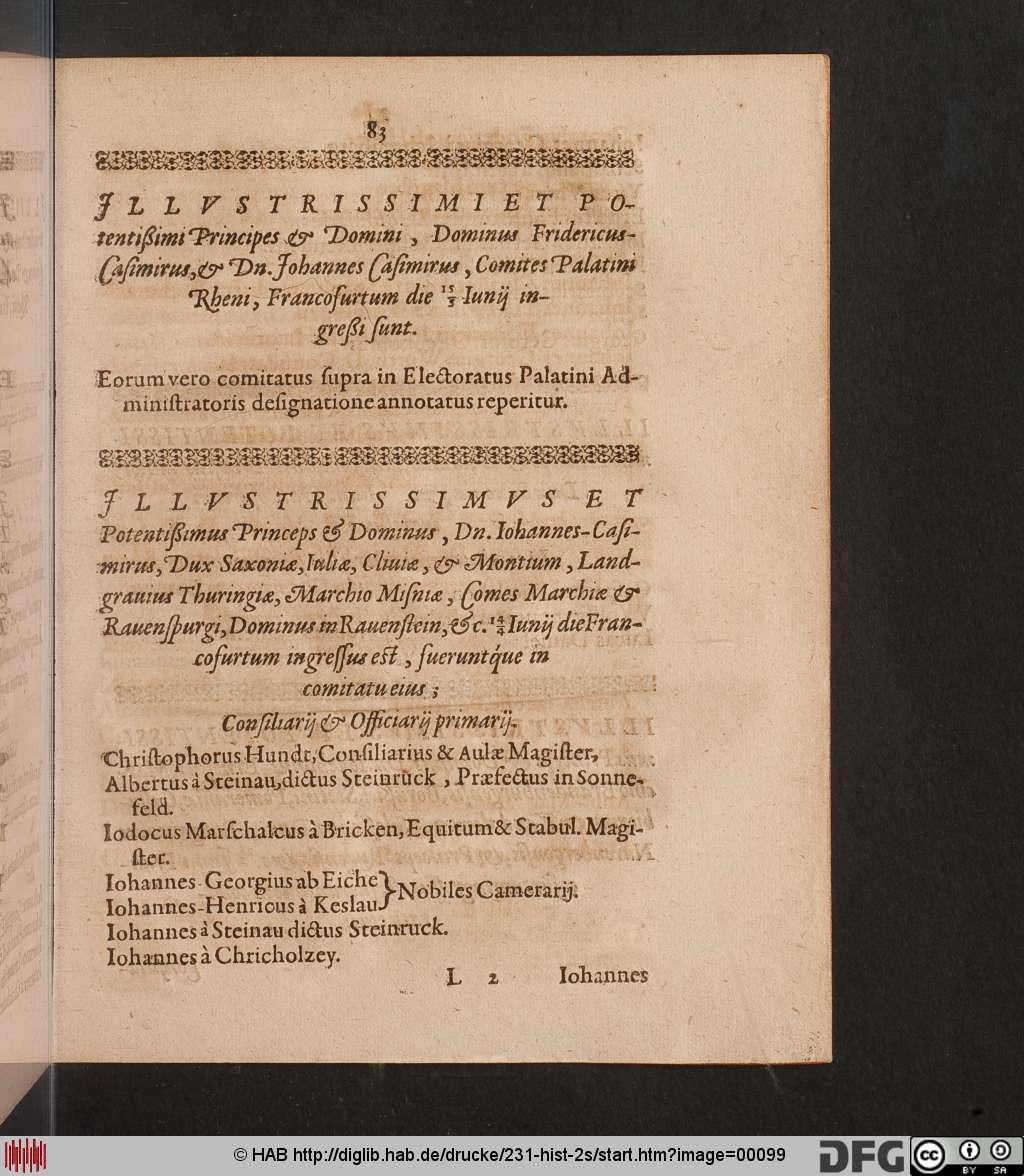 83
ILLVSTRISSIMI ET PO-
tentißimi Principes & Domini, Dominus Fridericus-
Casimirus, & Dn. Johannes Casimirus, Comites Palatini
Rheni, Francofurtum die 15/5 Iunij in-
greßi sunt.
Eorum vero comitatus supra in Electoratus Palatini Ad-
ministratoris designatione annotatus reperitur.
ILLVSTRISSIMVS ET
Potentißimus Princeps & Dominus, Dn. Iohannes-Casi-
mirus, Dux Saxoniæ, Iuliæ, Cliuiæ, & Montium, Land-
grauius Thuringiæ, Marchio Misniæ, Comes Marchiæ &
Rauenspurgi, Dominus in Rauenstein, &c. 14/4 Iunij die Fran-
cofurtum ingressus est, fueruntq́ue in
comitatu eius;
Consiliarij & Officiarij primarij.
Christophorus Hundt, Consiliarius & Aulæ Magister,
Albertus à Steinau, dictus Steinruck, Præfectus in Sonne-
feld.
Iodocus Marschalcus à Bricken, Equitum & Stabul. Magi-
ster.
Iohannes-Georgius ab Eiche
Iohannes-Henricus à Keslau } Nobiles Camerarij.
Iohannes à Steinau dictus Steinruck.
Iohannes à Chricholzey.
L 2 Iohannes
© HAB http://diglib.hab.de/drucke/231-hist-2s/start.htm?image=00099
DFG
cc BY SA